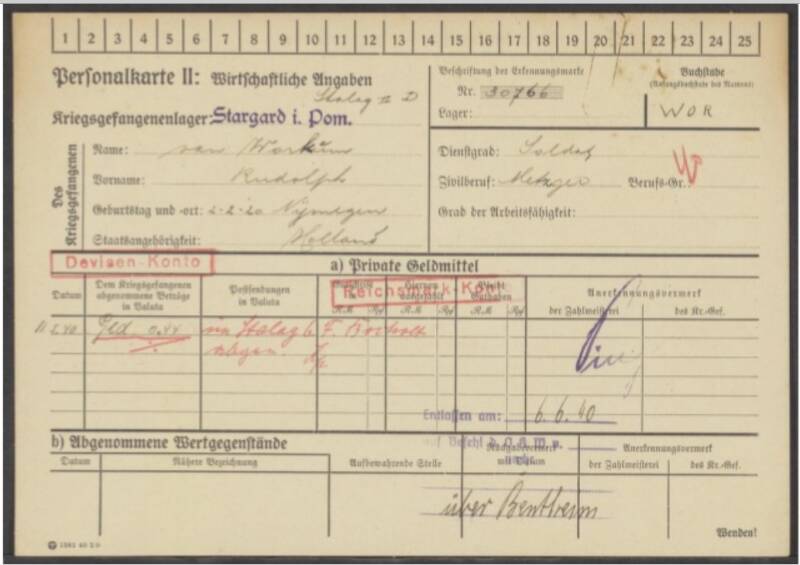 1 2 3 4 5 6 7 8 9 10 11 12 13 14 15 16 17 18 19 20 21 22 23 24 25
Personalkarte II: Wirtschaftliche Angaben
Stalag II D
Kriegsgefangenenlager: Stargard i. Pom.
Beschriftung der Erkennungsmarke
Nr. 30766
Lager:
Buchstabe
(Anfangsbuchstabe des Namens)
WOR
Des Kriegsgefangenen
Name: van Workum
Vorname: Rudolph
Geburtstag und -ort: 2-2-20 Nymegen
Staatsangehörigkeit: Holland
Dienstgrad: Soldat
Zivilberuf: Metzger Berufs-Gr.:
W
Grad der Arbeitsfähigkeit:
Devisen-Konto
a) Private Geldmittel
Reichsmark-Konto
Datum
Dem Kriegsgefangenen abgenommene Beträge in Valuta
Postsendungen in Valuta
Hiervon ausgezahlt
Bleibt Guthaben
R.M. Rpf R.M. Rpf R.M. Rpf
Anerkennungsvermerk
der Zahlmeisterei des Kr.-Gef.
Gld 0.44 im Stalag 6 F Bocholt
abgen.
Entlassen am: 6.6.40
auf Befehl d. O.K.W. v.
b) Abgenommene Wertgegenstände
Datum
Nähere Bezeichnung
Aufbewahrende Stelle
Rückgabevermerk mit Datum
Anerkennungsvermerk
der Zahlmeisterei des Kr.-Gef.
über Bentheim
Wenden!